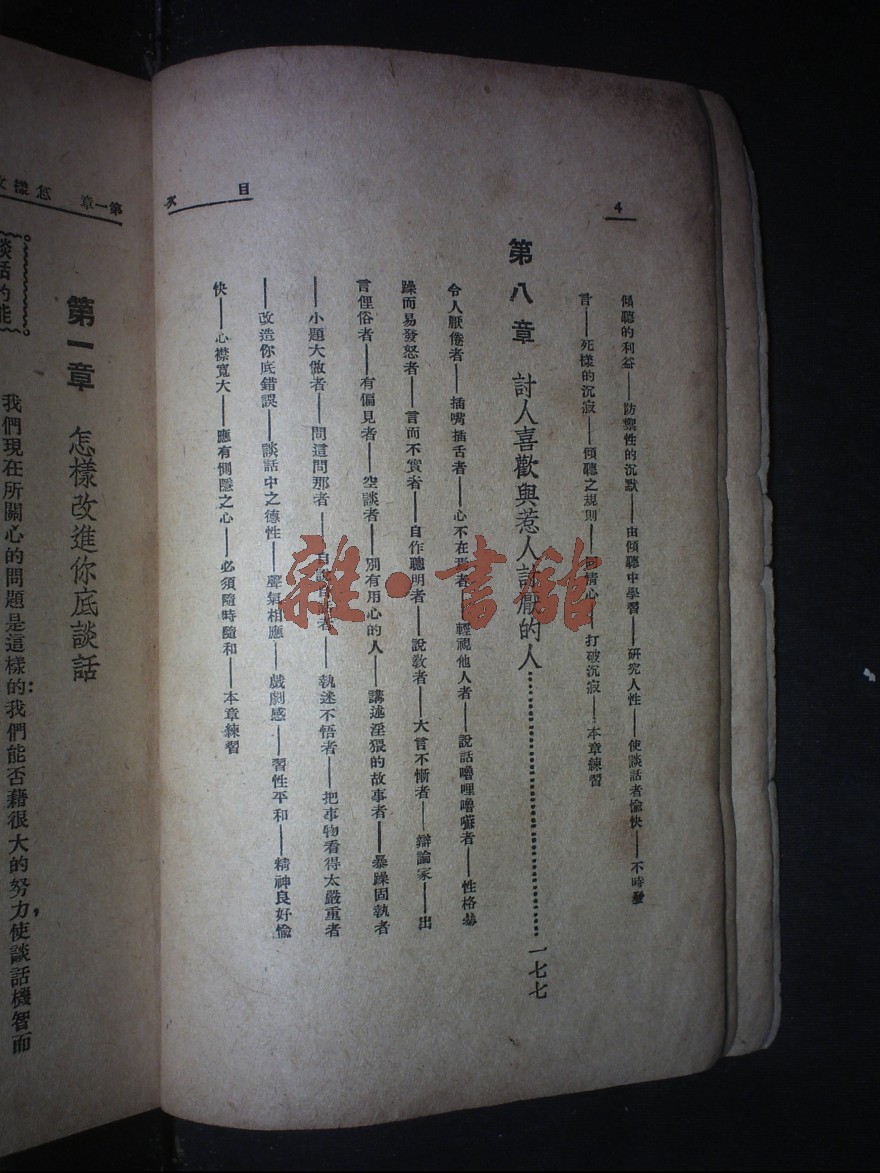 4
目次
傾聽的利益——防禦性的沉默——由傾聽中學習——研究人性——使談話者愉快——不時發
言——死樣的沉寂——傾聽之規則——情心——打破沉寂——本章練習
第八章 討人喜歡與惹人討厭的人……………………一七七
令人厭倦者——插嘴插舌者——心不在焉者——輕視他人者——說話嚕哩嚕囌者——性格暴
躁而易發怒者——言而不實者——自作聰明者——說教者——大言不慚者——辯論家——出
言俚俗者——有偏見者——空談者——別有用心的人——講述淫猥的故事者——暴躁固執者
——小題大做者——問這問那者——自說自話者——執迷不悟者——把事物看得太嚴重者
——改造你底錯誤——談話中之德性——聲氣相應——戲劇感——習性平和——精神良好愉
快——心襟寬大——應有惻隱之心——必須隨時隨和——本章練習
第一章 怎樣改
第一章 怎樣改進你底談話
談話的能
我們現在所關心的問題是這樣的:我們能否藉很大的努力,使談話機智而
雜·書館